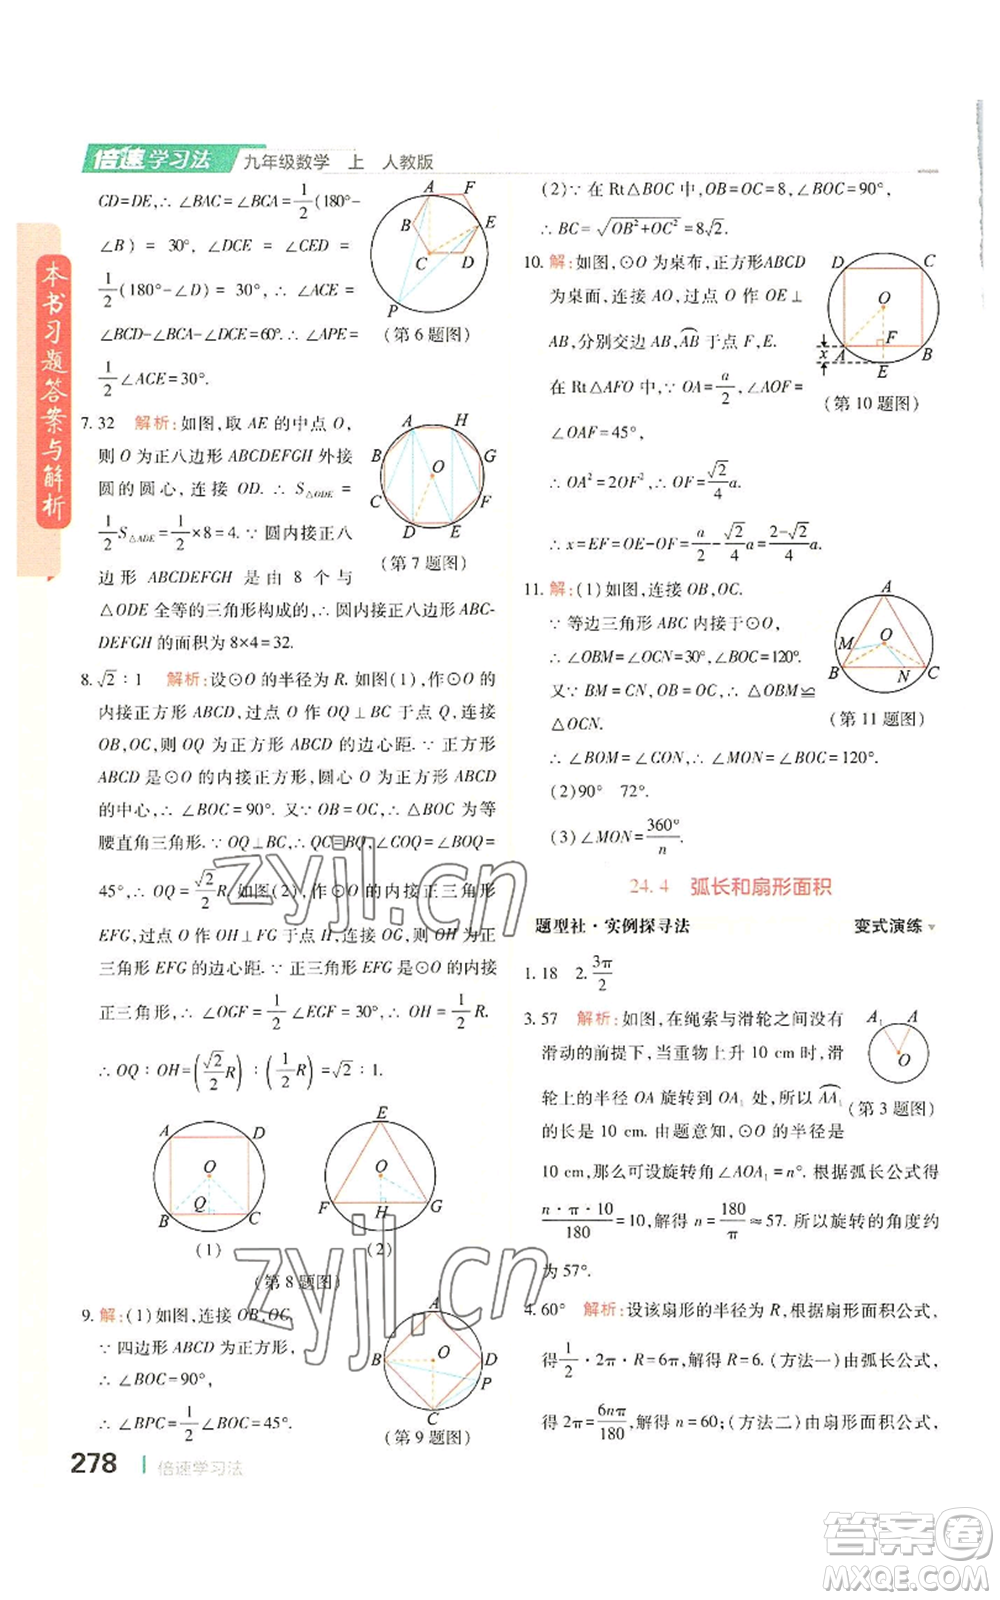 倍速学习法 九年级数学 上 人教版
本书习题答案与解析
CD=DE,∴ ∠BAC=∠BCA=1/2(180°-
∠B) = 30°, ∠DCE = ∠CED =
1/2(180°-∠D) = 30°, ∴ ∠ACE =
∠BCD-∠BCA-∠DCE=60°.∴ ∠APE=
1/2∠ACE=30°.
A F B E C D P
(第 6 题图)
7. 32 解析:如图,取 AE 的中点 O,
则 O 为正八边形 ABCDEFGH 外接
圆的圆心,连接 OD. ∴ S△ODE =
1/2 S△ADE = 1/2×8=4. ∵ 圆内接正八
边形 ABCDEFGH 是由 8 个与
△ODE 全等的三角形构成的,∴ 圆内接正八边形 ABC-
DEFGH 的面积为 8×4=32.
A H B G O C F D E
(第 7 题图)
8. √2 : 1 解析:设⊙O 的半径为 R. 如图(1),作⊙O 的
内接正方形 ABCD,过点 O 作 OQ⊥BC 于点 Q,连接
OB,OC,则 OQ 为正方形 ABCD 的边心距. ∵ 正方形
ABCD 是⊙O 的内接正方形,圆心 O 为正方形 ABCD
的中心,∴ ∠BOC=90°. 又∵ OB=OC,∴ △BOC 为等
腰直角三角形. ∵ OQ⊥BC,∴ QC=BQ,∴ ∠COQ=
45°,∴ OQ = √2/2 R. 如图(2),作⊙O 的内接正三角形
EFG,过点 O 作 OH⊥FG 于点 H,连接 OG,则 OH 为正
三角形 EFG 的边心距. ∵ 三角形 EFG 是⊙O 的内接
正三角形,∴ ∠OGF = 1/2∠EGF = 30°,∴ OH = 1/2 R.
∴ OQ : OH=(√2/2 R) : (1/2 R)=√2 : 1.
A D O Q B C
E O F H G
(1) (2)
(第 8 题图)
9. 解:(1)如图,连接 OB,OC,
∵ 四边形 ABCD 为正方形,
∴ ∠BOC=90°,
∴ ∠BPC=1/2∠BOC=45°.
A B O D P C
(第 9 题图)
(2)∵ 在 Rt△BOC 中,OB=OC=8,∠BOC=90°,
∴ BC=√(OB²+OC²)=8√2.
10. 解:如图,⊙O 为桌布,正方形ABCD
为桌面,连接 AO,过点 O 作 OE⊥
AB,分别交边 AB,AB⌒于点 F,E.
在 Rt△AFO 中,OA=a/2,∠AOF=
∠OAF=45°,
∴ OA²=2OF²,∴ OF=√2/4 a.
∴ x=EF=OE-OF=a/2-√2/4 a=(2-√2)/4 a.
D C O F x A E B
(第 10 题图)
11. 解:(1)如图,连接 OB,OC.
∵ 等边三角形 ABC 内接于⊙O,
∴ ∠OBM=∠OCN=30°,∠BOC=120°.
又∵ BM=CN,OB=OC,∴ △OBM≌
△OCN.
∴ ∠BOM=∠CON,∴ ∠MON=∠BOC=120°.
(2)90° 72°.
(3)∠MON=360°/n.
A M O B N C
(第 11 题图)
24.4 弧长和扇形面积
题型社·实例探寻法 变式演练
1. 18 2. 3π/2
3. 57 解析:如图,在绳索与滑轮之间没有
滑动的前提下,当重物上升 10 cm 时,滑
轮上的半径 OA 旋转至 OA₁ 处,所以AA₁⌒
的长是 10 cm. 由题意知,⊙O 的半径是
10 cm,那么可设旋转角∠AOA₁=n°. 根据弧长公式得
n·π·10/180=10,解得 n=180/π≈57. 所以旋转的角度约
为 57°.
A₁ A O
(第 3 题图)
4. 60° 解析:设该扇形的半径为 R,根据扇形面积公式,
得1/2·2π·R=6π,解得 R=6. (方法一)由弧长公式,
得 2π=6nπ/180,解得 n=60;(方法二)由扇形面积公式,
278 倍速学习法
zyjl.cn
zyjl.cn
答案卷
MXQE.COM